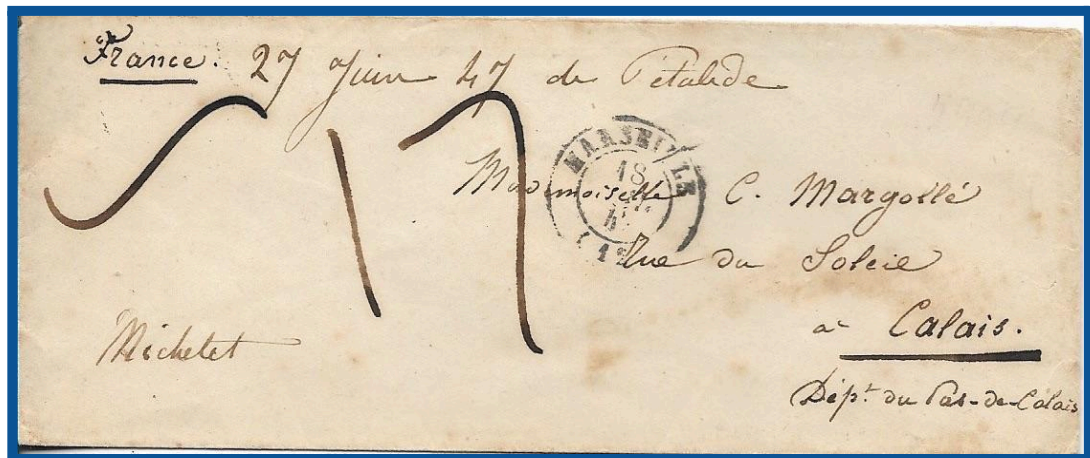 France. 27 Juin 47 de Petalide
17
MARSEILLE
18
(12)
Mademoiselle C. Margollé
Rue du Soleil
a Calais.
Michelet
Dépt. du Pas-de-Calais